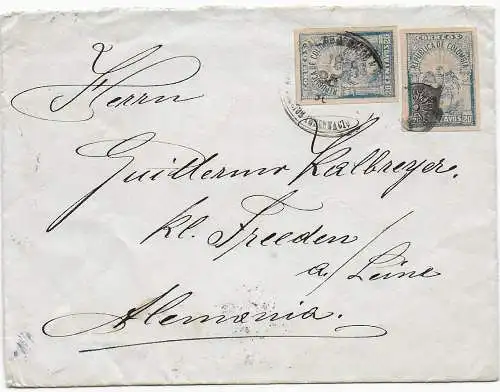 CORREOS
REPUBLICA DE COLOMBIA
CENTAVOS 20
CORREOS
REPUBLICA DE COLOMBIA
CENTAVOS 20
Herrn
Guillermo Kalbreyer.
kl. Freeden
a/Leine
Alemania.